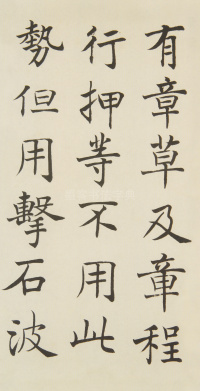 有章草及章程
行押等不用此
勢但用擊石波